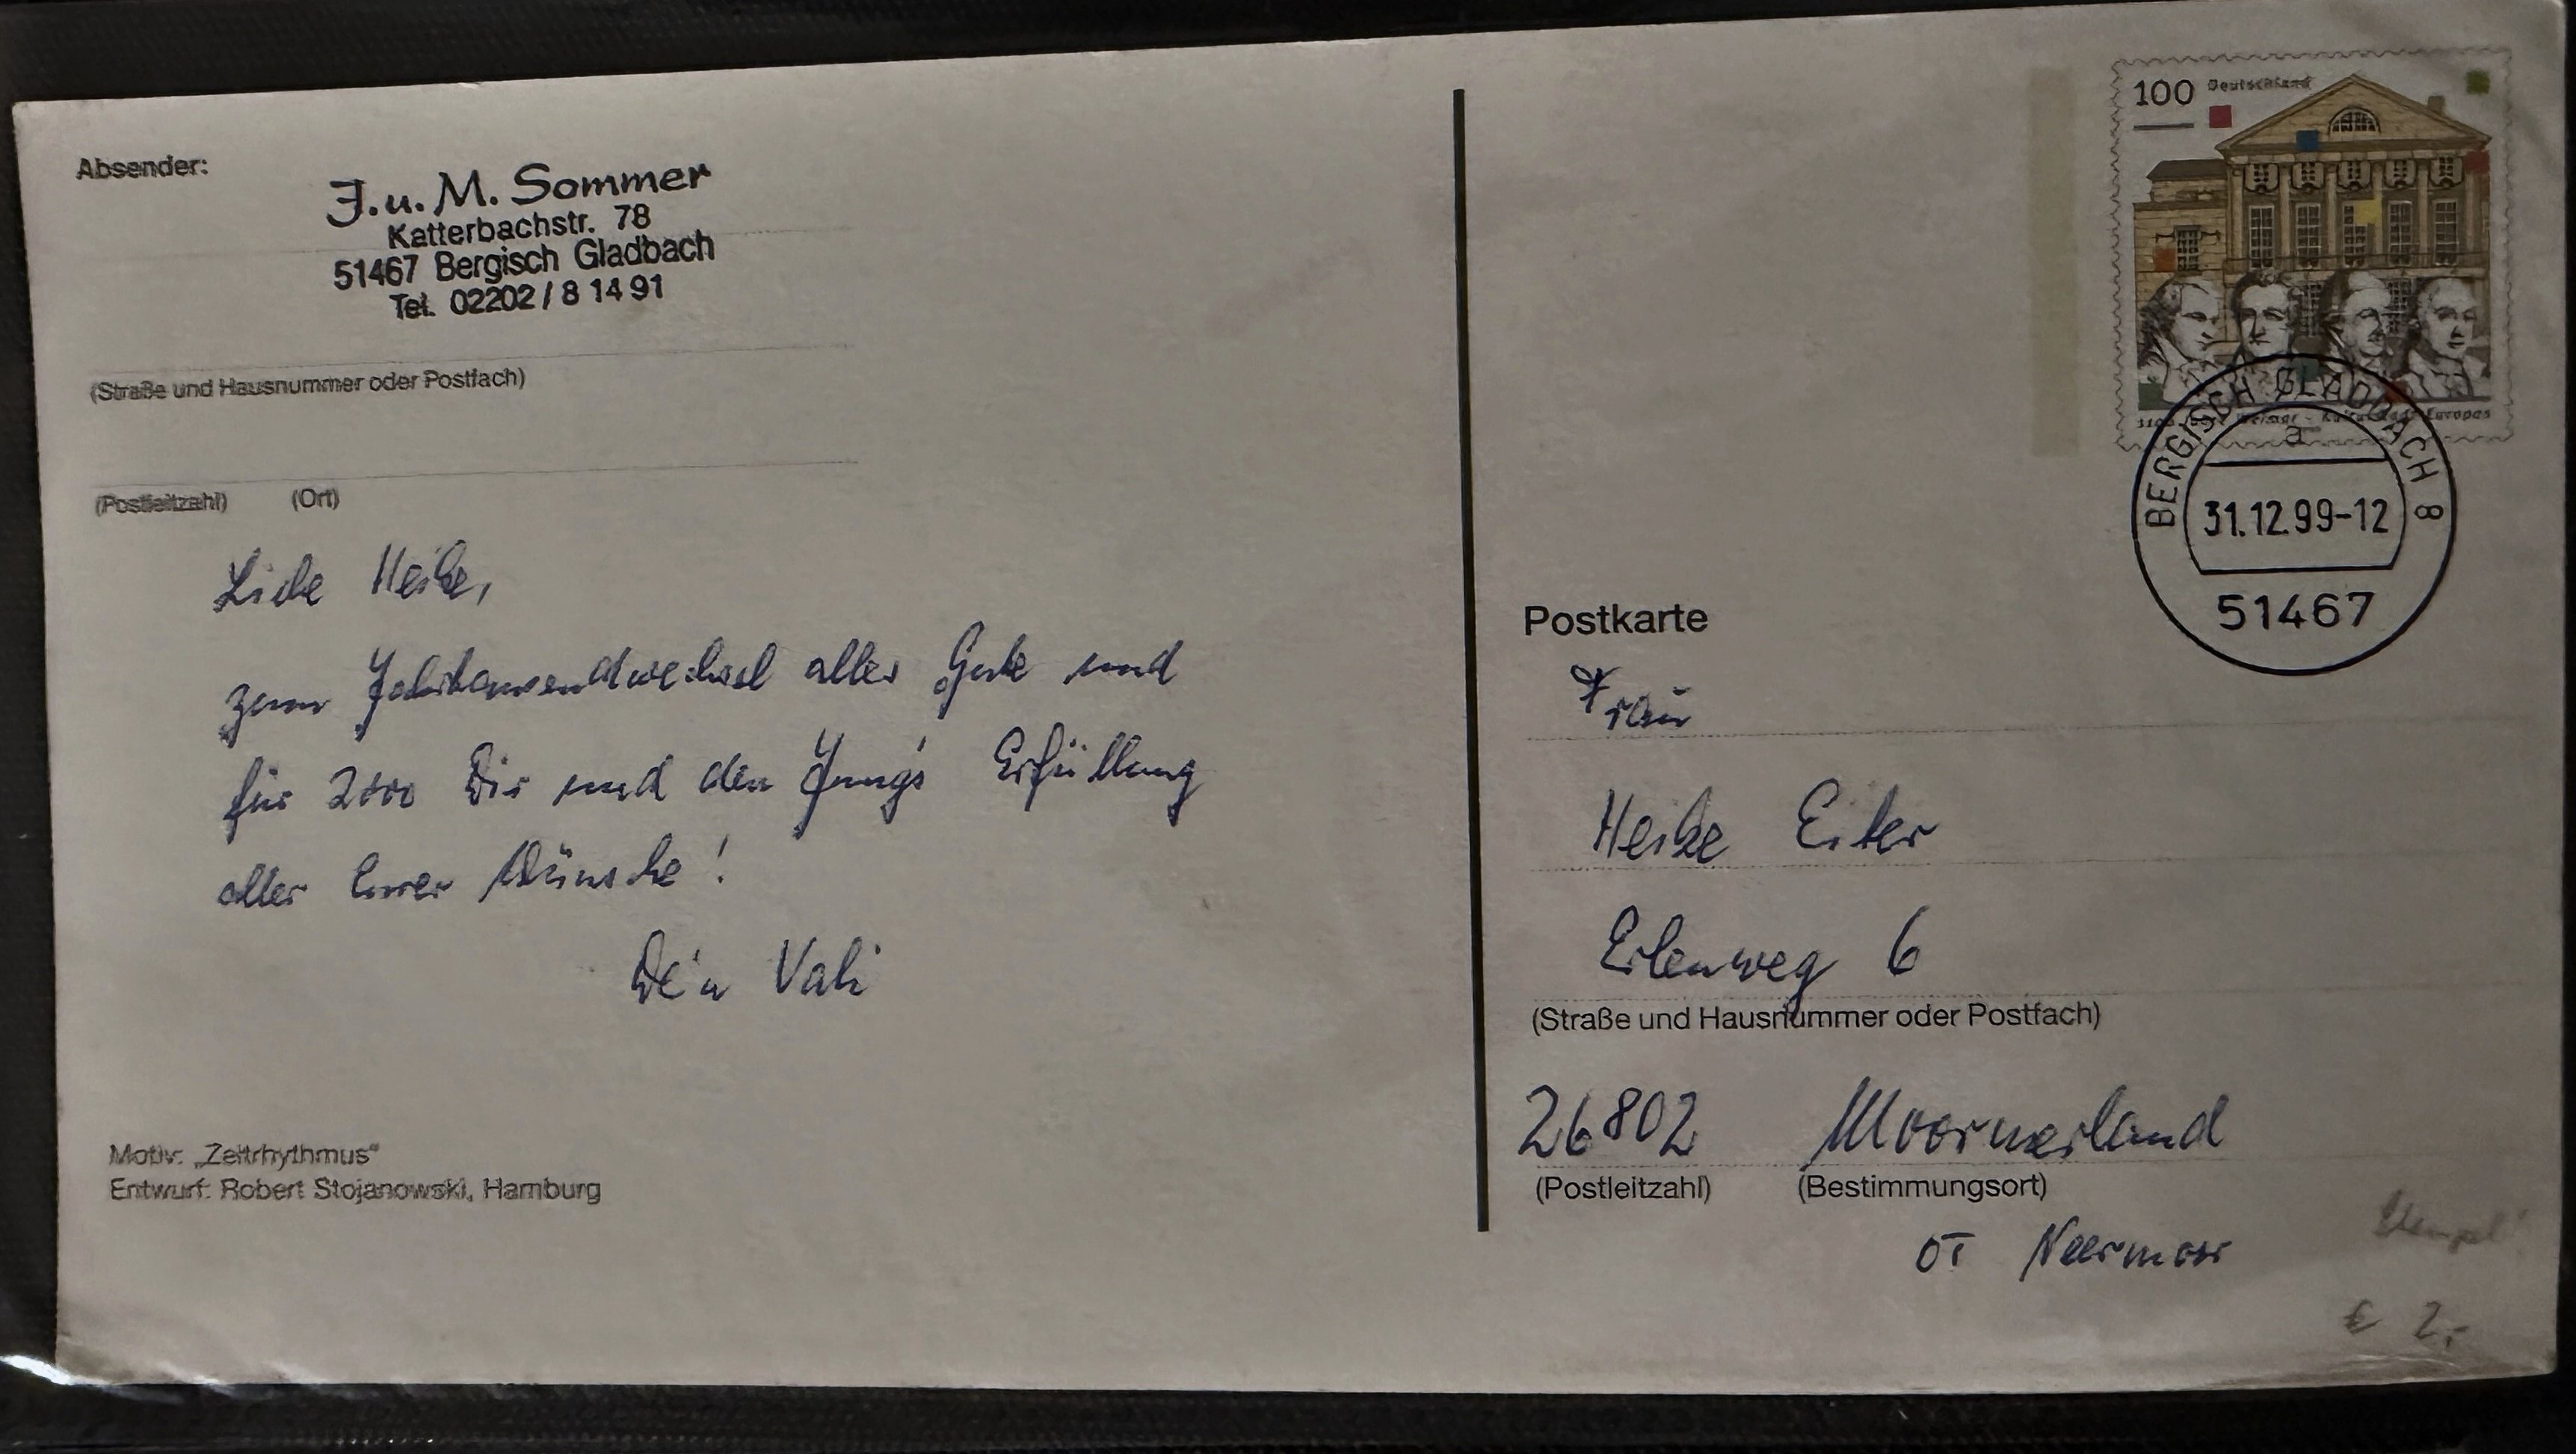 Absender:
J. u. M. Sommer
Katterbachstr. 78
51467 Bergisch Gladbach
Tel. 02202 / 8 14 91
(Straße und Hausnummer oder Postfach)
(Postleitzahl) (Ort)
Liebe Heike,
zum Jahrtausendwechsel alles Gute und
für 2000 Dir und den Jung's Erfüllung
aller Eurer Wünsche!
Dein Vati
Motiv: „Zeitrhythmus“
Entwurf: Robert Stojanowski, Hamburg
100 Deutschland
1100 Jahre Weimar - Kulturstadt Europas
BERGISCH GLADBACH 8
a
31.12.99-12
51467
Postkarte
Frau
Heike Eiter
Erlenweg 6
(Straße und Hausnummer oder Postfach)
26802 Moormerland
(Postleitzahl) (Bestimmungsort)
OT Neermoor
Stempel
€ 2,-